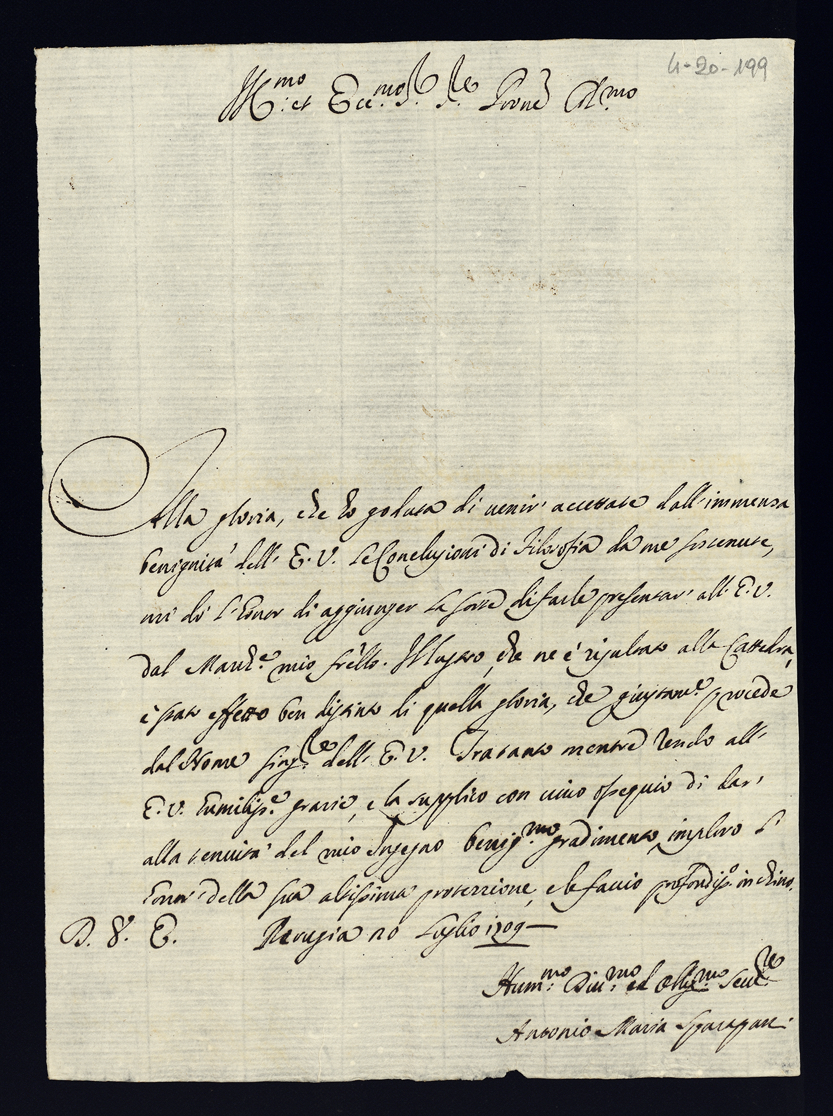 4-20-199
Ill.mo et Ecc.mo S.r S.re Prone Col.mo
Alla gloria, che hò goduta di venir' accettate dall' immensa
benignità dell' E.V. le Conclusioni di Filosofia da me sostenute,
mi dò l' honor di aggiunger la sorte di farle presentar' all' E.V.
dal March.e mio frello. Il lustro, che ne è risultato alla Cattedra,
è stato effetto ben distinto di quella gloria, che giustam.e procede
dal Nome sing.re dell' E.V. Tratanto mentre rendo all'
E.V. humiliss.e grazie, e la supplico con vivo ossequio di dar'
alla tenuità del mio Ingegno benig.mo gradimento, imploro l'
honor' della sua altissima protezzione, e le faccio profondiss.o inchino.
D. V. E. Perugia 20 Luglio 1709
Hum.mo Div.mo ed Oblig.mo Serv.re
Antonio Maria Sparapani